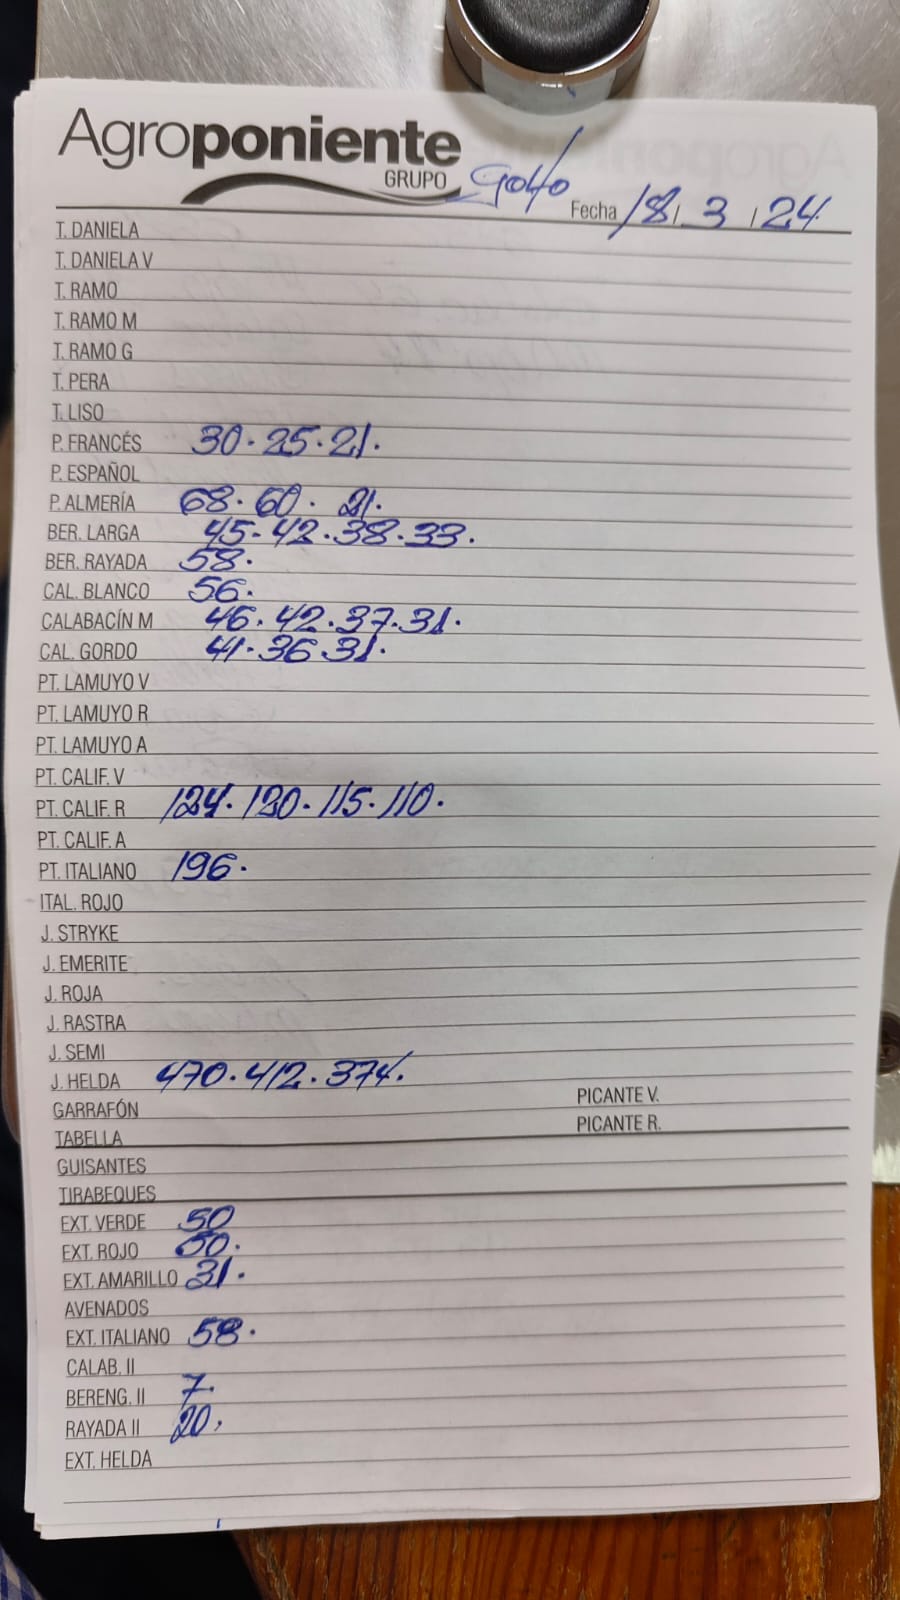 Agroponiente
GRUPO
Golfo
Fecha 18/3/24
T. DANIELA
T. DANIELA V
T. RAMO
T. RAMO M
T. RAMO G
T. PERA
T. LISO
P. FRANCÉS 30 · 25 · 21.
P. ESPAÑOL
P. ALMERÍA 68 · 60 · 21.
BER. LARGA 45 - 42 · 38 · 33.
BER. RAYADA 58.
CAL. BLANCO 56.
CALABACÍN M 46 · 42 · 37 · 31.
CAL. GORDO 41 · 36 · 31.
PT. LAMUYO V
PT. LAMUYO R
PT. LAMUYO A
PT. CALIF. V
PT. CALIF. R 124 · 120 · 115 · 110.
PT. CALIF. A
PT. ITALIANO 196.
ITAL. ROJO
J. STRYKE
J. EMERITE
J. ROJA
J. RASTRA
J. SEMI
J. HELDA 470 · 412 · 374.
GARRAFÓN PICANTE V.
TABELLA PICANTE R.
GUISANTES
TIRABEQUES
EXT. VERDE 50
EXT. ROJO 50.
EXT. AMARILLO 31.
AVENADOS
EXT. ITALIANO 58.
CALAB. II
BERENG. II 7.
RAYADA II 20.
EXT. HELDA